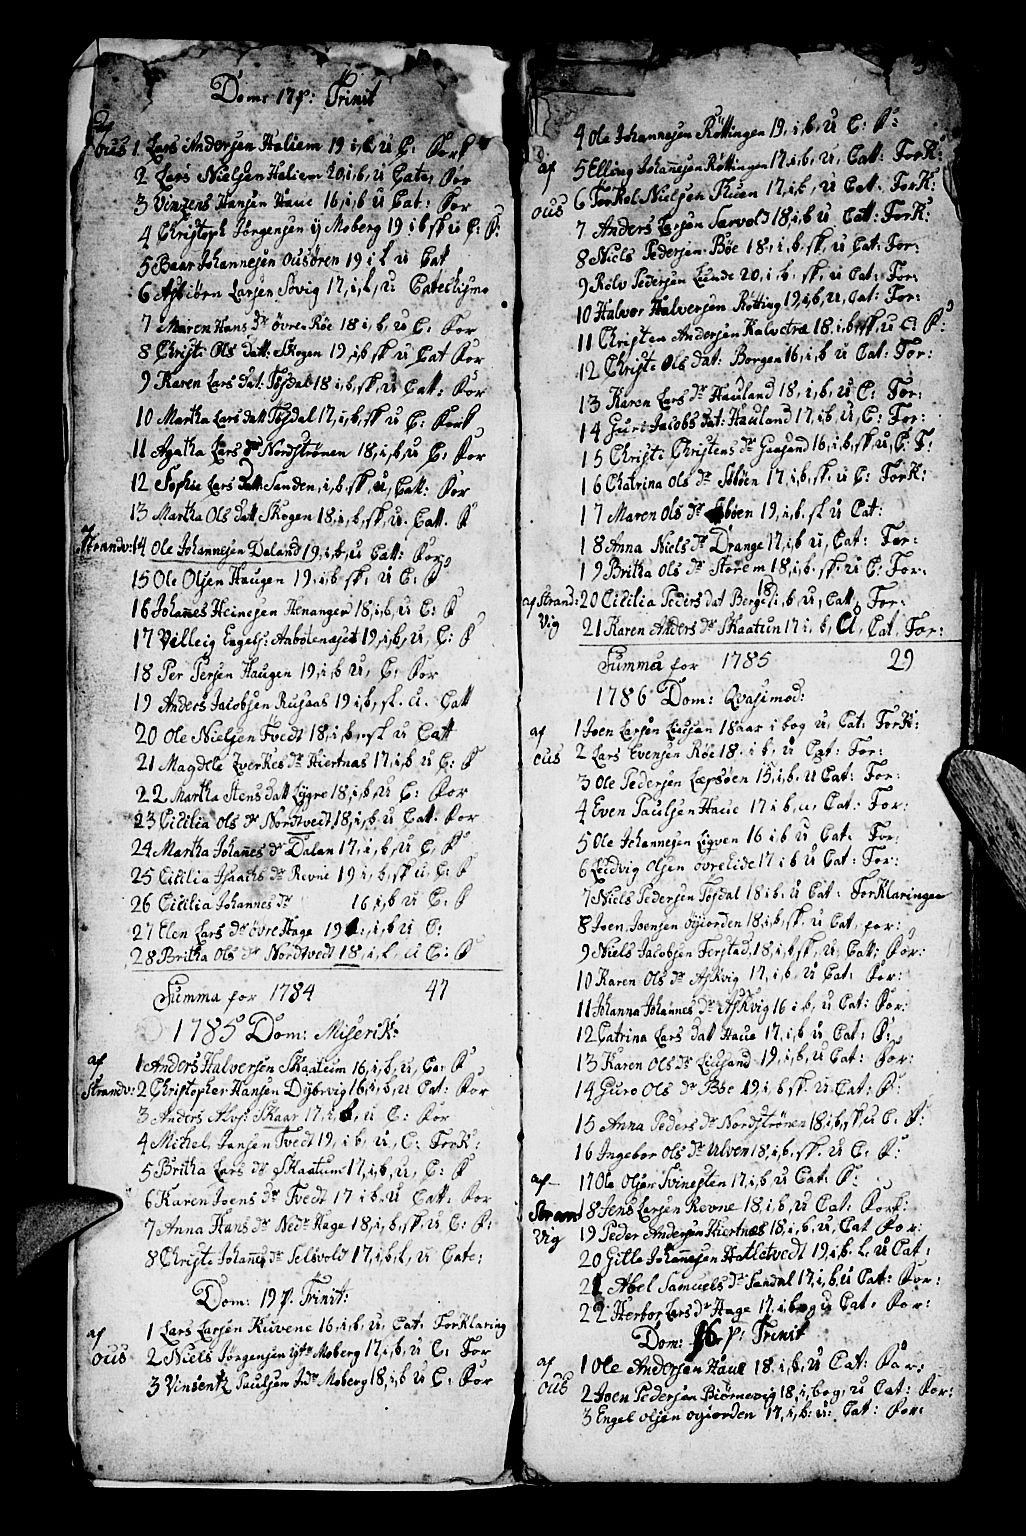 Domr 17 p: Trinit
af
ous 1 Lars Andersen Haliem 19 i b, u C: Fork
2 Lars Nielsen Haliem 20, i b, u Cate, For
3 Vinzens Hansen Haue 16, i b, u Cat: For
4 Christoph Jörgensen ij Moberg 19 i b sk u C: F:
5 Baar Johannesen Ousören 19 i b u Cat
6 Asbiörn Larsen Sövig 17, i, b, u Cateshismo
7 Maren Hans Dr övre Röe 18 i b, u C: For
8 Christi Ols datt: Skogen 19, i b sk u Cat For
9 Karen Lars dat: Tøsdal 18 i, b, sk, u Catt: For
10 Martha Lars datt Tøsdal 17, i, b, sk u C: Fork
11 Agatha Lars Dr Nordströnen 18, i, b, u C: For
12 Sophie Lars datt: Sanden, i, b, sk, u, Catt: For
13 Martha Ols datt Skogen 18, i, b, sk, u. Catt. F
Strandv: 14 Ole Johannesen Daland 19, i b, u Catt: For
15 Ole Olsen Haugen 19, i b sk, u C: F
16 Johanes Heinesen Henanger 18, i b, u C: F
17 Villeig Engels: Aabölenæset 19, i b, u, C: F
18 Per Persen Haugen 19, i b u, C: For
19 Anders Jacobsen Rusaas 19 i b, sk. u. Catt
20 Ole Nielsen Tvedt 18, i b, sk u Catt
21 Magdele Zverkes Dr Hiertnas 17, i b, u C: F
22 Martha Stens datt Lygre 18, i b, u C: For
23 Cicilia Ols Dr Nordtvedt 18, i b u Catt: For
24 Martha Johanes Dr Dalan 17, i, b, u C, F
25 Cicilia Isaachs Dr Revne 19 i, b, sk u, C: F
26 Cicilia Johannes Dr 16 i, b u C: F
27 Elen Lars Dr övre Hage 19 i, b u C:
28 Britha Ols Dr Nordtvedt 18, i, b, u C: F
Summa for 1784 47
1785 Dom: Miserik:
af
Strandv: 1 Anders Halversen Skaatum 16, i, b, u, C: F
2 Christopher Hansen Dybvvig 16, i b, u Cat: For
3 Anders Alvs: Skaar 17, i b, u C: For
4 Michel Jansen Tvedt 19, i b, u, C: Fork:
5 Britha Lars Dr Skaatum 17, i b, u, C: F
6 Karen Joens Dr Tvedt 17 i b, u Catt: For
7 Anna Hans Dr Nedr Hage 18, i, b, sk, u C: F:
8 Christi Johanes Dr Selsvold 17, i b, k, u Cate:
Dom: 19 p. Trinit:
af
ous 1 Lars Larsen Ruvene 16, i b, u Cat: Forklaring
2 Niels Jörgensen ytr Moberg 17, i b, u C: For
3 Vinsentz Paulsen Indr Moberg 18, i b u C: For
4 Ole Johannesen Röttingen 19, i b, u C: F:
af
ous 5 Elling Johannesen Röttingen 17, i b, u, Catt: Fork:
6 Torkel Nielsen Tluen 17, i b, u Catt. Fork:
7 Anders Larsen Sævold 18, i b u Catt: Fork:
8 Niels Pedersen Böe 18 i, b, sk, u Cat: For:
9 Rolv Pedersen Lunde 20, i b, sk, u Cat: For:
10 Halvor Halversen Rötting 19, i b, u, Cat: For:
11 Christen Andersen Kalvetræ 18. i b, sk, u C: F:
12 Christi Ols dat: Borgen 16, i, b u Cat: For:
13 Karen Lars Dr Hauland 18, i, b, u C: For:
14 Guri Jacobs dat: Hauland 17, i b u, C: For:
15 Christi Christens Dr Gaasand 16 i, b, sk, u, C: F:
16 Chatrina Ols Dr Söböen 17, i b, sk. u C: Fork:
17 Maren Ols Dr Söböen 19, i b. sk u Cat:
18 Anna Niels Dr Drange 17, i b, u, Cat: For:
19 Britha Ols Dr Storem 18, i b, sk, u C: For:
af Strand: 20 Cicilia Peders dat Berge 18 i, b, u, Catt, For:
Vig 21 Karen Anders Dr Skaatun 17 i, b, u, Cat, For:
Summa for 1785 29
1786 Dom: Qvasimod:
af
ous 1 Joen Larsen Liusan 18 aar i bog u Cat: Fork:
2 Lars Evensen Röe 18. i b, u Cat: For:
3 Ole Pedersen Læpsöen 15, i b. u Cat: For:
4 Even Paulsen Haue 17 i b, u, Cat: For:
5 Ole Johannesen Ligven 16 i b u Cat: For:
6 Leidvig Olsen övre Eide 17 i b u Cat: For:
7 Niels Pedersen Tøsdal 18 i b. u Cat: Forklaringen
8 Joen, Joensen ogiorden 18, i b, sk. u Cat, for:
9 Niels Jacobsen Ferstad, 18, i b, sk, u, Catt: For:
10 Karen Ols Dr Askvig 17, i b, u Cat: For:
11 Johanna Johannes Dr Askvig 16 i b, u Cat: For:
12 Catrina Lars datt Haue 17, i b, u Cat: F:
13 Karen Ols Dr Liusand 19, i b, u Cat: For:
14 Guro Ols Dr Böe 19 i b sk. u Cat: F:
15 Anna Peders Dr Nordströnen 18, i b, sk u C: F:
16 Ingebor Ols Dr Ulven 18, i, b, sk, u C, F:
af 17 Ole Olsen Svinesten 17, i b, u Cat: F:
Strand
Vig 18 Jens Larsen Revne 18, i b, u Cat: Fork:
19 Peder Andersen Hiertnæs 18, i b, u Cat For:
20 Gille Johannesen Hatletvedt 19, i b. k. u Cat:
21 Abel Samuels Dr Sandal 17, i, b, u Cat: For:
22 Herbor Lars Dr Hage 17, i bog u Cat: For:
Dom: 16 p: Trinit
af
ous 1 Ole Andersen Haue 18, i, b, u Cat: For:
2 Joen Pedersen Biörnevig 18, i bog, u Cat: For:
3 Engel olsen ogiorden 17, i, b: u: Cat: For: